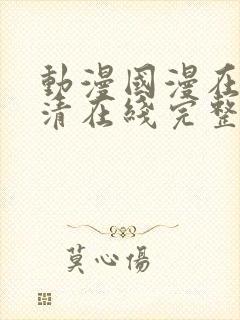 動漫國漫在
清在綫完整
莫心傷